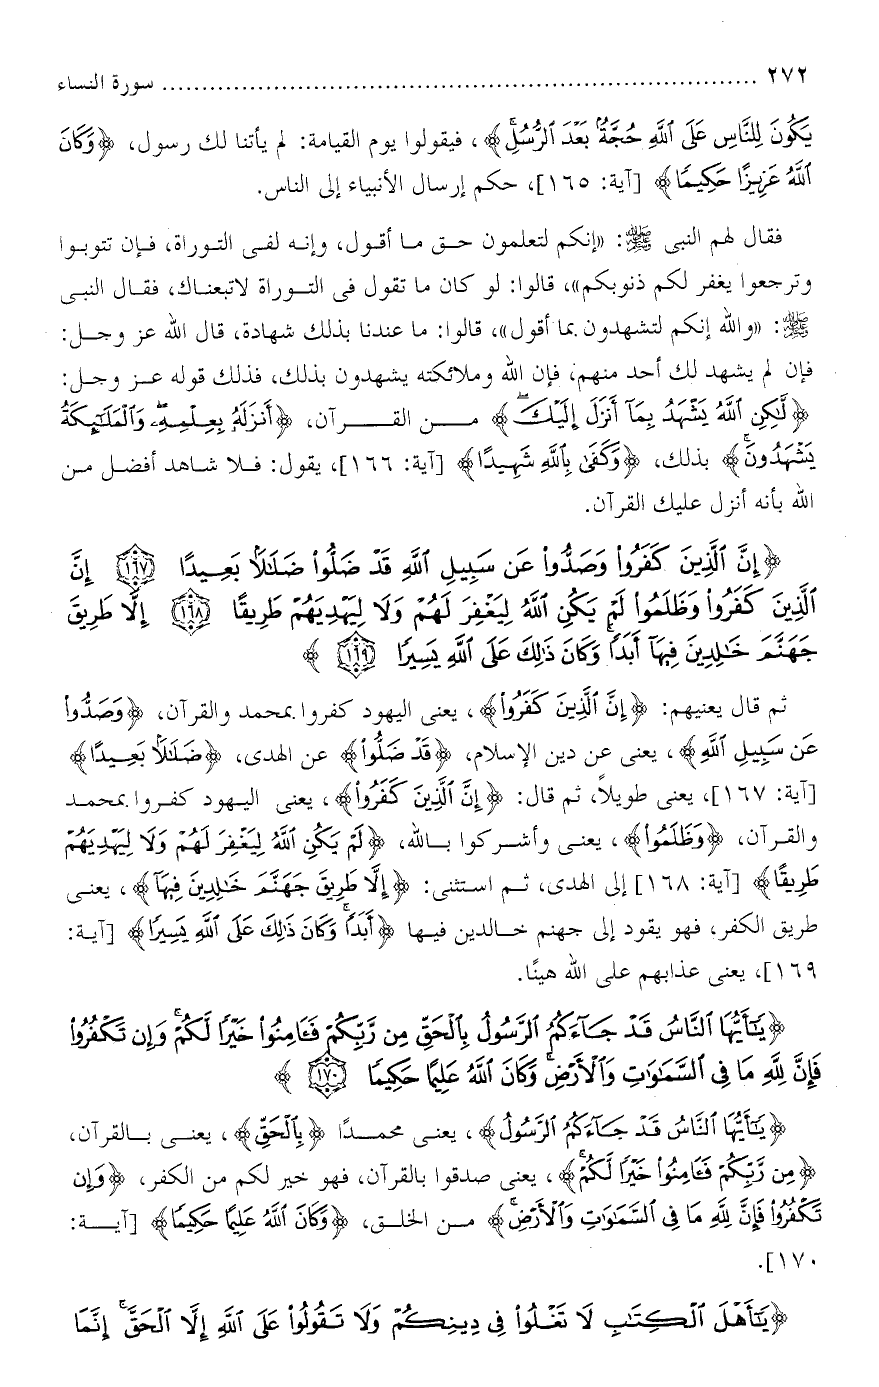 ٢٧٢ ........................................................................... سورة النساء
يَكُونَ لِلنَّاسِ عَلَى ٱللَّهِ حُجَّةٌۢ بَعْدَ ٱلرُّسُلِۚ﴾، فيقولوا يوم القيامة: لم يأتنا لك رسول، ﴿وَكَانَ
ٱللَّهُ عَزِيزًا حَكِيمًا﴾ [آية: ١٦٥]، حكم إرسال الأنبياء إلى الناس.
فقال لهم النبى ﷺ: «إنكم لتعلمون حق ما أقول، وإنه لفى التوراة، فإن تتوبوا
وترجعوا يغفر لكم ذنوبكم»، قالوا: لو كان ما تقول فى التوراة لاتبعناك، فقال النبى
ﷺ: «والله إنكم لتشهدون بما أقول»، قالوا: ما عندنا بذلك شهادة، قال الله عز وجل:
فإن لم يشهد لك أحد منهم، فإن الله وملائكته يشهدون بذلك، فذلك قوله عز وجل:
﴿لَّٰكِنِ ٱللَّهُ يَشْهَدُ بِمَآ أَنزَلَ إِلَيْكَۖ﴾ من القرآن، ﴿أَنزَلَهُۥ بِعِلْمِهِۦۖ وَٱلْمَلَٰٓئِكَةُ
يَشْهَدُونَۚ﴾ بذلك، ﴿وَكَفَىٰ بِٱللَّهِ شَهِيدًا﴾ [آية: ١٦٦]، يقول: فلا شاهد أفضل من
الله بأنه أنزل عليك القرآن.
﴿إِنَّ ٱلَّذِينَ كَفَرُوا۟ وَصَدُّوا۟ عَن سَبِيلِ ٱللَّهِ قَدْ ضَلُّوا۟ ضَلَٰلًۢا بَعِيدًا ١٦٧ إِنَّ
ٱلَّذِينَ كَفَرُوا۟ وَظَلَمُوا۟ لَمْ يَكُنِ ٱللَّهُ لِيَغْفِرَ لَهُمْ وَلَا لِيَهْدِيَهُمْ طَرِيقًا ١٦٨ إِلَّا طَرِيقَ
جَهَنَّمَ خَٰلِدِينَ فِيهَآ أَبَدًاۚ وَكَانَ ذَٰلِكَ عَلَى ٱللَّهِ يَسِيرًا ١٦٩﴾
ثم قال يعنيهم: ﴿إِنَّ ٱلَّذِينَ كَفَرُوا۟﴾، يعنى اليهود كفروا بمحمد والقرآن، ﴿وَصَدُّوا۟
عَن سَبِيلِ ٱللَّهِ﴾، يعنى عن دين الإسلام، ﴿قَدْ ضَلُّوا۟﴾ عن الهدى، ﴿ضَلَٰلًۢا بَعِيدًا﴾
[آية: ١٦٧]، يعنى طويلاً، ثم قال: ﴿إِنَّ ٱلَّذِينَ كَفَرُوا۟﴾، يعنى اليهود كفروا بمحمد
والقرآن، ﴿وَظَلَمُوا۟﴾، يعنى وأشركوا بالله، ﴿لَمْ يَكُنِ ٱللَّهُ لِيَغْفِرَ لَهُمْ وَلَا لِيَهْدِيَهُمْ
طَرِيقًا﴾ [آية: ١٦٨] إلى الهدى، ثم استثنى: ﴿إِلَّا طَرِيقَ جَهَنَّمَ خَٰلِدِينَ فِيهَآ﴾، يعنى
طريق الكفر، فهو يقود إلى جهنم خالدين فيها ﴿أَبَدًاۚ وَكَانَ ذَٰلِكَ عَلَى ٱللَّهِ يَسِيرًا﴾ [آية:
١٦٩]، يعنى عذابهم على الله هينًا.
﴿يَٰٓأَيُّهَا ٱلنَّاسُ قَدْ جَآءَكُمُ ٱلرَّسُولُ بِٱلْحَقِّ مِن رَّبِّكُمْ فَـَٔامِنُوا۟ خَيْرًا لَّكُمْۚ وَإِن تَكْفُرُوا۟
فَإِنَّ لِلَّهِ مَا فِى ٱلسَّمَٰوَٰتِ وَٱلْأَرْضِۚ وَكَانَ ٱللَّهُ عَلِيمًا حَكِيمًا ١٧٠﴾
﴿يَٰٓأَيُّهَا ٱلنَّاسُ قَدْ جَآءَكُمُ ٱلرَّسُولُ﴾، يعنى محمدًا ﴿بِٱلْحَقِّ﴾، يعنى بالقرآن،
﴿مِن رَّبِّكُمْ فَـَٔامِنُوا۟ خَيْرًا لَّكُمْۚ﴾، يعنى صدقوا بالقرآن، فهو خير لكم من الكفر، ﴿وَإِن
تَكْفُرُوا۟ فَإِنَّ لِلَّهِ مَا فِى ٱلسَّمَٰوَٰتِ وَٱلْأَرْضِۚ﴾ من الخلق، ﴿وَكَانَ ٱللَّهُ عَلِيمًا حَكِيمًا﴾ [آية:
١٧٠].
﴿يَٰٓأَهْلَ ٱلْكِتَٰبِ لَا تَغْلُوا۟ فِى دِينِكُمْ وَلَا تَقُولُوا۟ عَلَى ٱللَّهِ إِلَّا ٱلْحَقَّۚ إِنَّمَا